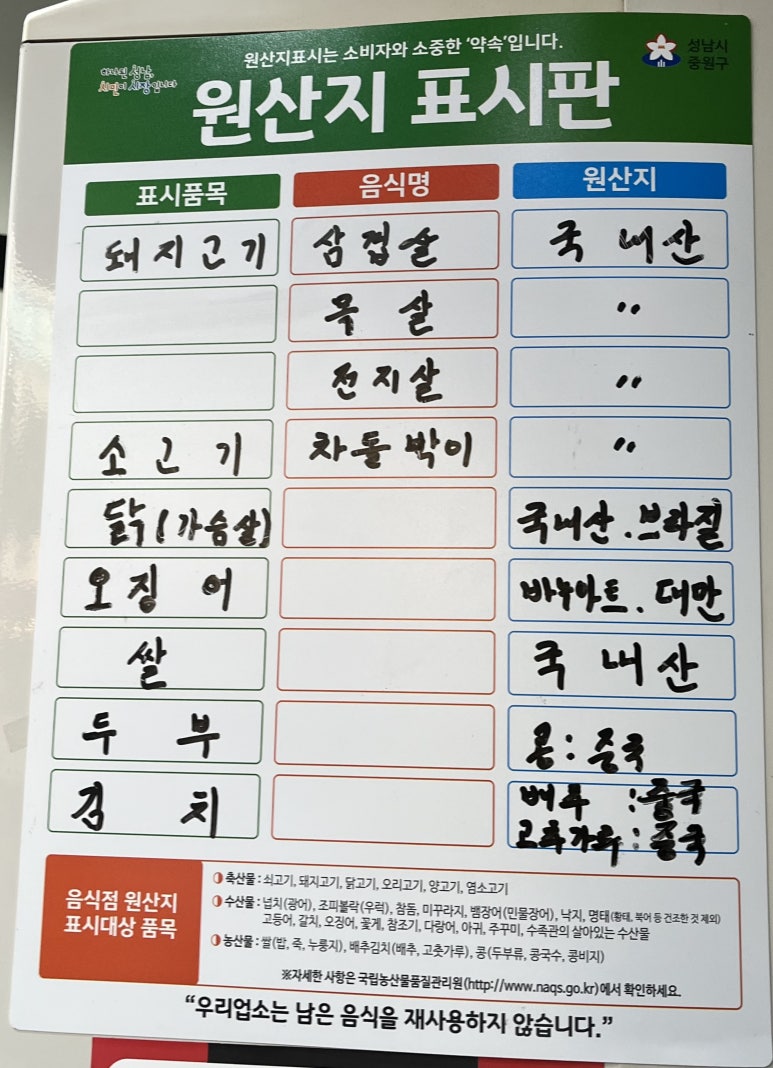 원산지표시는 소비자와 소중한 '약속'입니다.
하나된 성남, 시민이 시장입니다
성남시 중원구
원산지 표시판
표시품목 음식명 원산지
돼지고기 삼겹살 국내산
목살 〃
전지살 〃
소고기 차돌박이 〃
닭(가슴살) 국내산.브라질
오징어 바누아트.대만
쌀 국내산
두부 콩:중국
김치 배추:중국
고추가루:중국
음식점 원산지
표시대상 품목
축산물 : 쇠고기, 돼지고기, 닭고기, 오리고기, 양고기, 염소고기
수산물 : 넙치(광어), 조피볼락(우럭), 참돔, 미꾸라지, 뱀장어(민물장어), 낙지, 명태(황태, 북어 등 건조한 것 제외)
고등어, 갈치, 오징어, 꽃게, 참조기, 다랑어, 아귀, 주꾸미, 수족관의 살아있는 수산물
농산물 : 쌀(밥, 죽, 누룽지), 배추김치(배추, 고춧가루), 콩(두부류, 콩국수, 콩비지)
※자세한 사항은 국립농산물품질관리원(http://www.naqs.go.kr)에서 확인하세요.
"우리업소는 남은 음식을 재사용하지 않습니다."